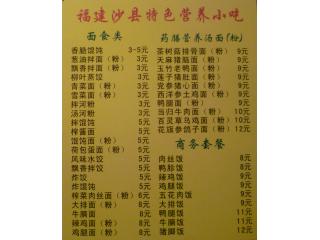 福建沙县特色营养小吃
面食类
香脆馄饨 3-5元
葱油拌面 3元
飘香拌面 3元
柳叶蒸饺 3元
青菜面（粉） 3元
雪菜面（粉） 3元
拌河粉 3元
汤河粉 3元
拌馄饨 5元
榨酱面 5元
馄饨面（粉） 5元
荷包蛋面（粉） 5元
风味水饺 5元
飘香拌饺 5元
炸饺 5元
炸馄饨 5元
榨菜肉丝面（粉） 6元
大排面（粉） 8元
牛腩面 8元
辣鸡面（粉） 8元
鸡腿面（粉） 8元
药膳营养汤面(粉)
茶树菇排骨面（粉） 9元
天麻猪脑面（粉） 9元
玉竹老鸭面（粉） 9元
莲子猪肚面（粉） 9元
党参猪心面（粉） 9元
西洋参土鸡面（粉） 9元
鸭腿面（粉） 9元
当归牛肉面（粉） 10元
百灵草乌鸡面（粉） 10元
花旗参鸽子面（粉） 12元
商务套餐
肉丝饭 8元
鸭胗饭 8元
辣鸡饭 8元
鸡腿饭 8元
五花肉饭 9元
大排饭 9元
鸭腿饭 11元
牛腩饭 11元
猪脚饭 12元